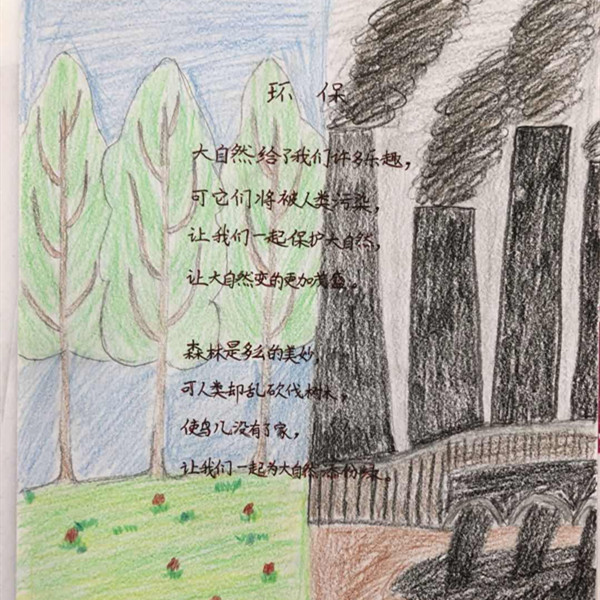 环保
大自然给了我们许多乐趣，
可它们将被人类污染，
让我们一起保护大自然，
让大自然变的更加
森林是多么的美妙，
可人类却乱砍伐树木，
使鸟儿没有了家，
让我们一起为大自然添份绿。